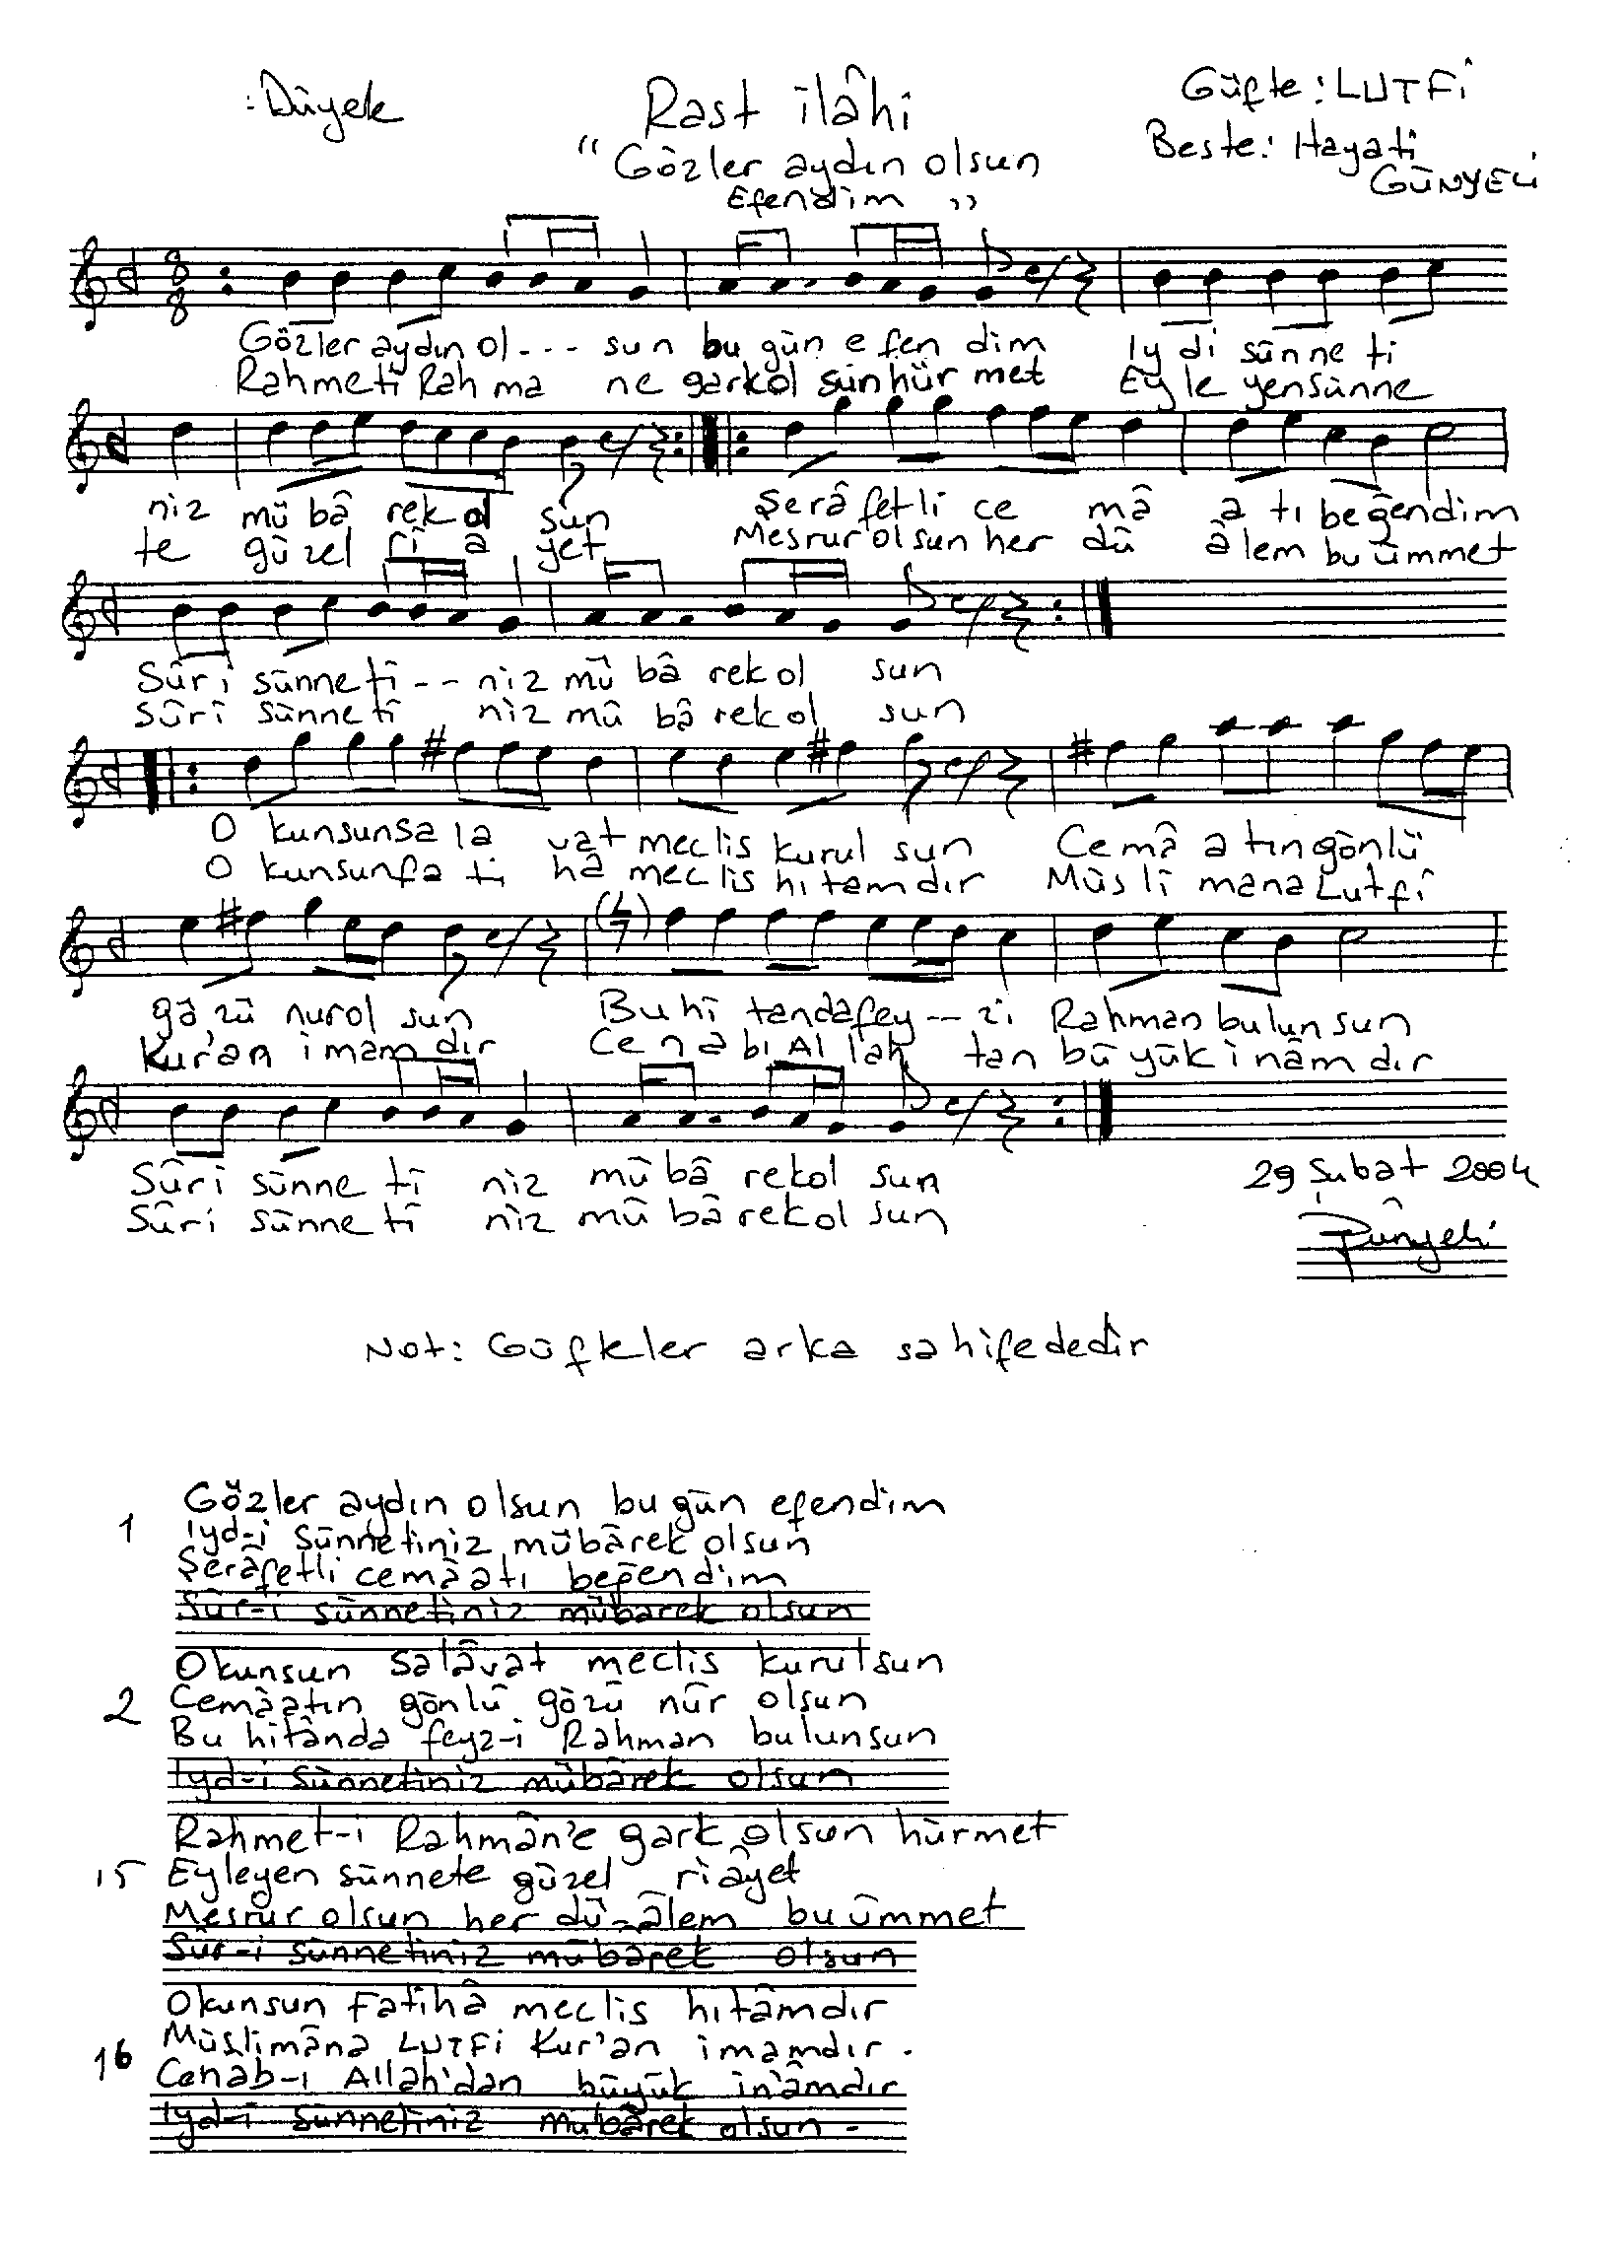 :Düyek
Rast ilâhi
"Gözler aydın olsun
Efendim"
Güfte: LUTFİ
Beste: Hayati
GÜNYELİ
8
8
Gözler aydın ol--- sun bu gün e fen dim Iy di sünne ti
Rahmeti Rah ma ne garkol sün hür met Ey le yensünne
niz mü bâ rekol sun Şerâ fetli ce mâ a tı beğendim
te güzel ri a yet Mesrur olsun her dü âlem bu ümmet
Sûri sünneti-- niz mü bâ rek ol sun
sûri sünneti niz mü bâ rek ol sun
O kunsunsa la vat meclis kurul sun Cemâ a tın gönlü
O kunsunfa ti ha meclis hıtamdır Müsli mana Lutfi
gö zü nurol sun Bu hi tandafey--zi Rahman bulun sun
Kur'an imamdır Ce n a bı Al lah tan bü yük i nâm dır
Sûri sünne ti niz mü bâ rekol sun
Sûri sünne ti niz mü bârekol sun
29 Şubat 2004
Günyeli
Not: Güfteler arka sahifededir
1
Gözler aydın olsun bu gün efendim
Iyd-i Sünnetiniz mübârek olsun
Şerâfetli cemâatı beğendim
Sûr-i sünnetiniz mübarek olsun
2
Okunsun salâvat meclis kurulsun
Cemâatın gönlü gözü nûr olsun
Bu hitânda feyz-i Rahman bulunsun
Iyd-i sünnetiniz mübârek olsun
15
Rahmet-i Rahmân'e gark olsun hürmet
Eyleyen sünnete güzel riâyet
Mesrur olsun her dü-âlem bu ümmet
Sûr-i sünnetiniz mübarek olsun
16
Okunsun Fatihâ meclis hıtâmdır
Müslimâna LUTFİ Kur'an imamdır.
Cenab-ı Allah'dan büyük in'âmdır
Iyd-i sünnetiniz mübârek olsun.